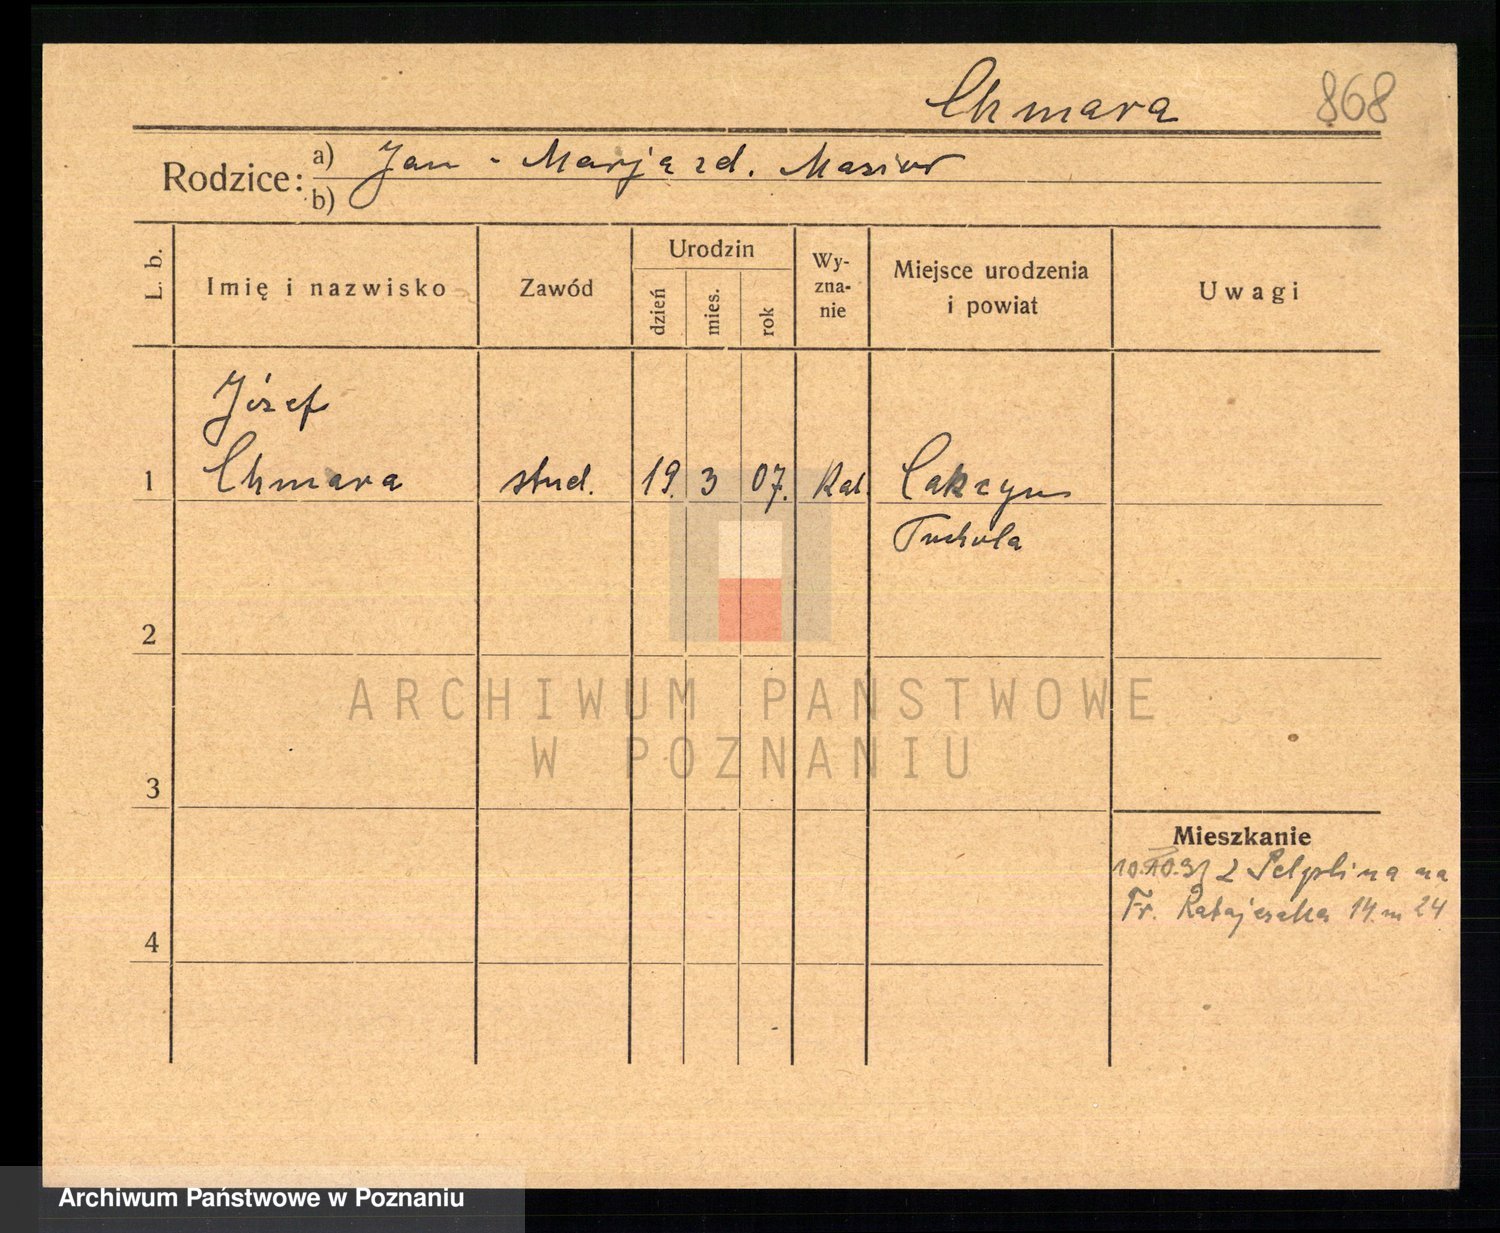 Chmara 868
Rodzice: a) Jan - Marja zd. Masior
b)
L. b. Imię i nazwisko Zawód Urodzin dzień mies. rok Wy-zna-nie Miejsce urodzenia i powiat Uwagi
Józef
1 Chmara stud. 19. 3 07. Kat. Cekcyn
Tuchola
2
3
Mieszkanie
10.10.31 z Pelplina na
Fr. Ratajczaka 14. m 24
4
ARCHIWUM PAŃSTWOWE
W POZNANIU
Archiwum Państwowe w Poznaniu